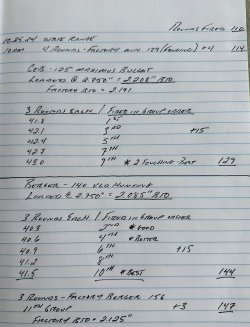 Rounds Fired 110
10.25.24 State Range
10AM 4 Rounds - Factory 139 (Fouling) +4 114
CEB - 125 Maximus Bullet
Loaded @ 2.750" = 2.208" BTO
Factory BTO = 2.191
3 Rounds Each / Fired in Group Order
41.8 1st
42.1 3rd +15
42.4 5th
42.7 7th
43.0 9th * 2 Touching 129
Berger - 140 VLD Hunting
Loaded @ 2.750" = 2.085" BTO
3 Rounds Each / Fired in Group Order
40.3 2nd * Good
40.6 4th * Better
40.9 6th +15
41.2 8th
41.5 10th * Best 144
3 Rounds - Factory Berger 156
11th Group +3 147
Factory BTO = 2.125"